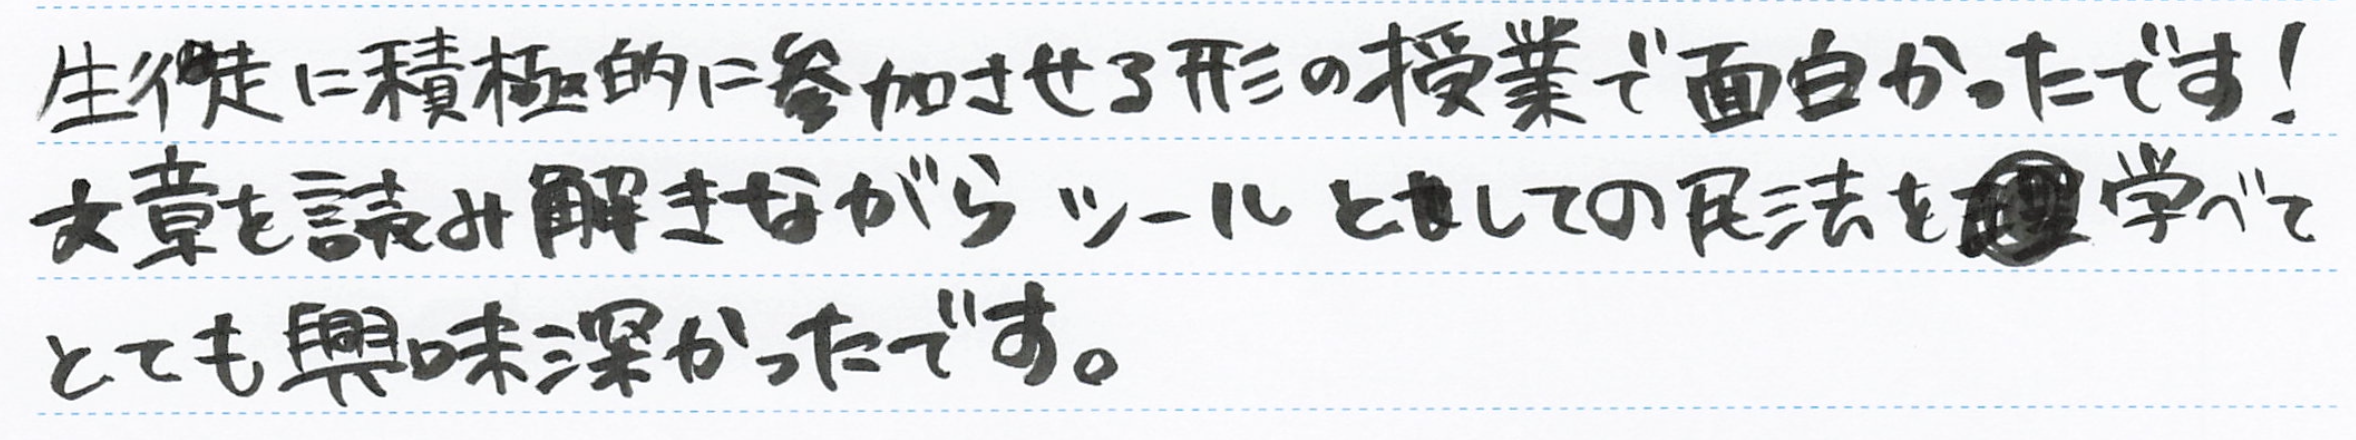 生徒に積極的に参加させる形の授業で面白かったです!
文章を読み解きながらツールとしての民法を学べて
とても興味深かったです。